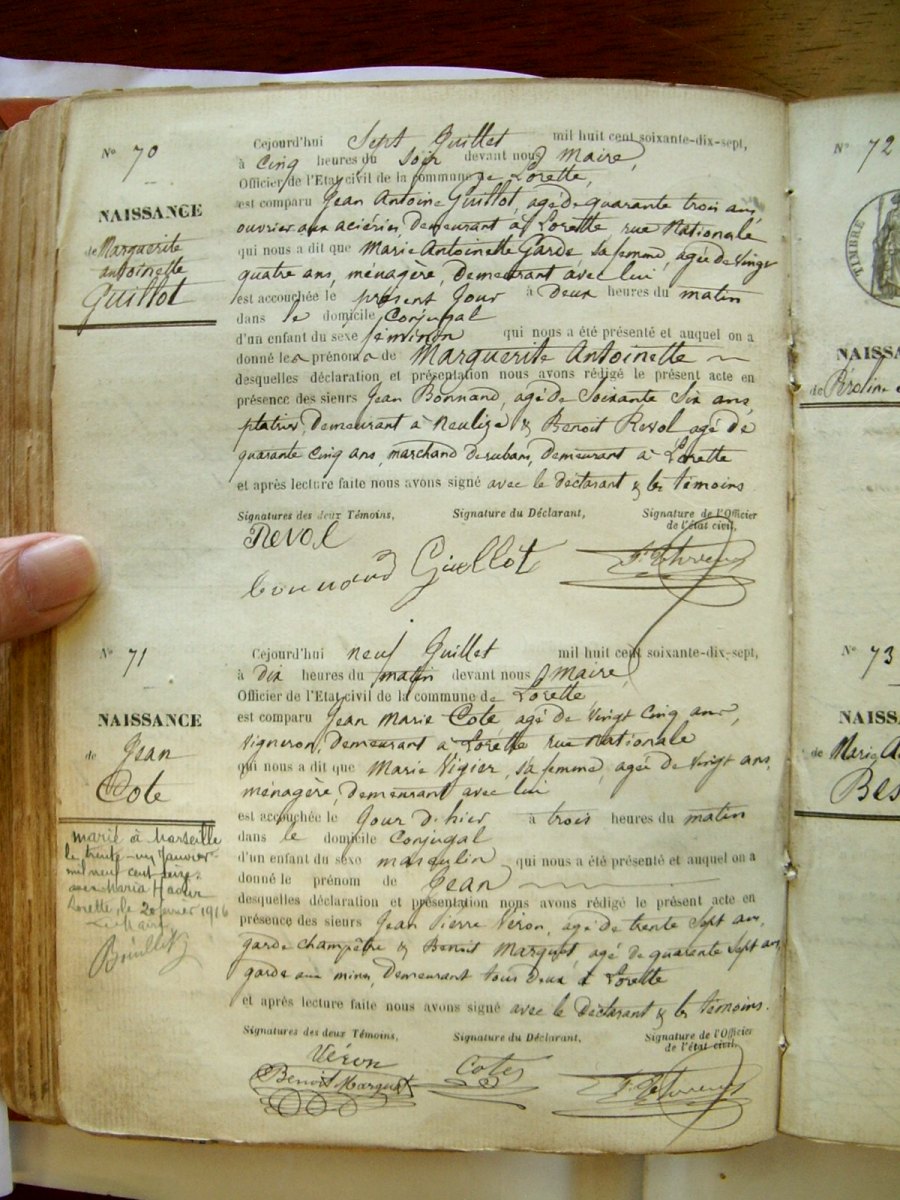 Nº 70
NAISSANCE
de Marguerite
antoinette
Guillot
Cejourd'hui Sept Juillet mil huit cent soixante-dix-sept,
à Cinq heures du Soir devant nous Maire,
Officier de l'Etat civil de la commune de Lorette,
est comparu Jean Antoine Guillot, agé de quarante trois ans,
ouvrier aux aciéries, demeurant à Lorette, rue Nationale
qui nous a dit que Marie Antoinette Garde, sa femme, agée de vingt
quatre ans, ménagère, demeurant avec lui
est accouchée le présent Jour à Deux heures du matin
dans le domicile Conjugal
d'un enfant du sexe féminin qui nous a été présenté et auquel on a
donné les prénoms de Marguerite Antoinette
desquelles déclaration et présentation nous avons rédigé le présent acte en
présence des sieurs Jean Bonnand, agé de Soixante Six ans,
platrier, demeurant à Neulize & Benoit Revol agé de
quarante Cinq ans, marchand de rubans, demeurant à Lorette
et après lecture faite nous avons signé avec le déclarant & les témoins
Signatures des deux Témoins, Signature du Déclarant, Signature de l'Officier
de l'état civil,
Revol
bonnand Guillot
Nº 71
NAISSANCE
de Jean
Cote
marié à Marseille
le trente-un Janvier
mil neuf cent seize
avec Maria Haour
Lorette, le 2 février 1916
Le Maire
Cejourd'hui neuf Juillet mil huit cent soixante-dix-sept,
à dix heures du matin devant nous Maire,
Officier de l'Etat civil de la commune de Lorette
est comparu Jean Marie Cote agé de Vingt Cinq ans,
Vigneron, demeurant à Lorette rue Nationale
qui nous a dit que Marie Vigier, sa femme, agée de Vingt ans,
ménagère, demeurant avec lui
est accouchée le Jour d'hier à trois heures du matin
dans le domicile Conjugal
d'un enfant du sexe masculin qui nous a été présenté et auquel on a
donné le prénom de Jean
desquelles déclaration et présentation nous avons rédigé le présent acte en
présence des sieurs Jean Pierre Véron, agé de trente Sept ans,
garde champêtre & Benoit Marquet, agé de quarante Sept ans
garde aux mines, demeurant tous deux à Lorette
et après lecture faite nous avons signé avec le déclarant & les témoins.
Signatures des deux Témoins, Signature du Déclarant, Signature de l'Officier
de l'état civil,
Véron
Benoit Marquet Cote
Nº 72
TIMBRE
NAISSA
de
Nº 73
NAISS
de Marie A
Bes